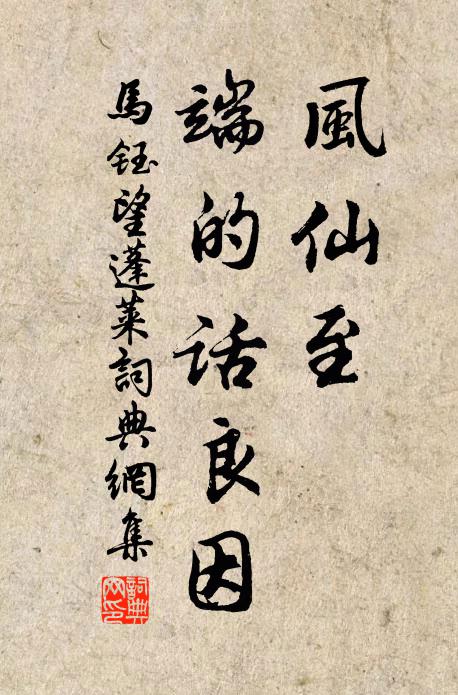 風仙至
端的话良因
馬鈺望蓬萊詞典網集
詞典
文印